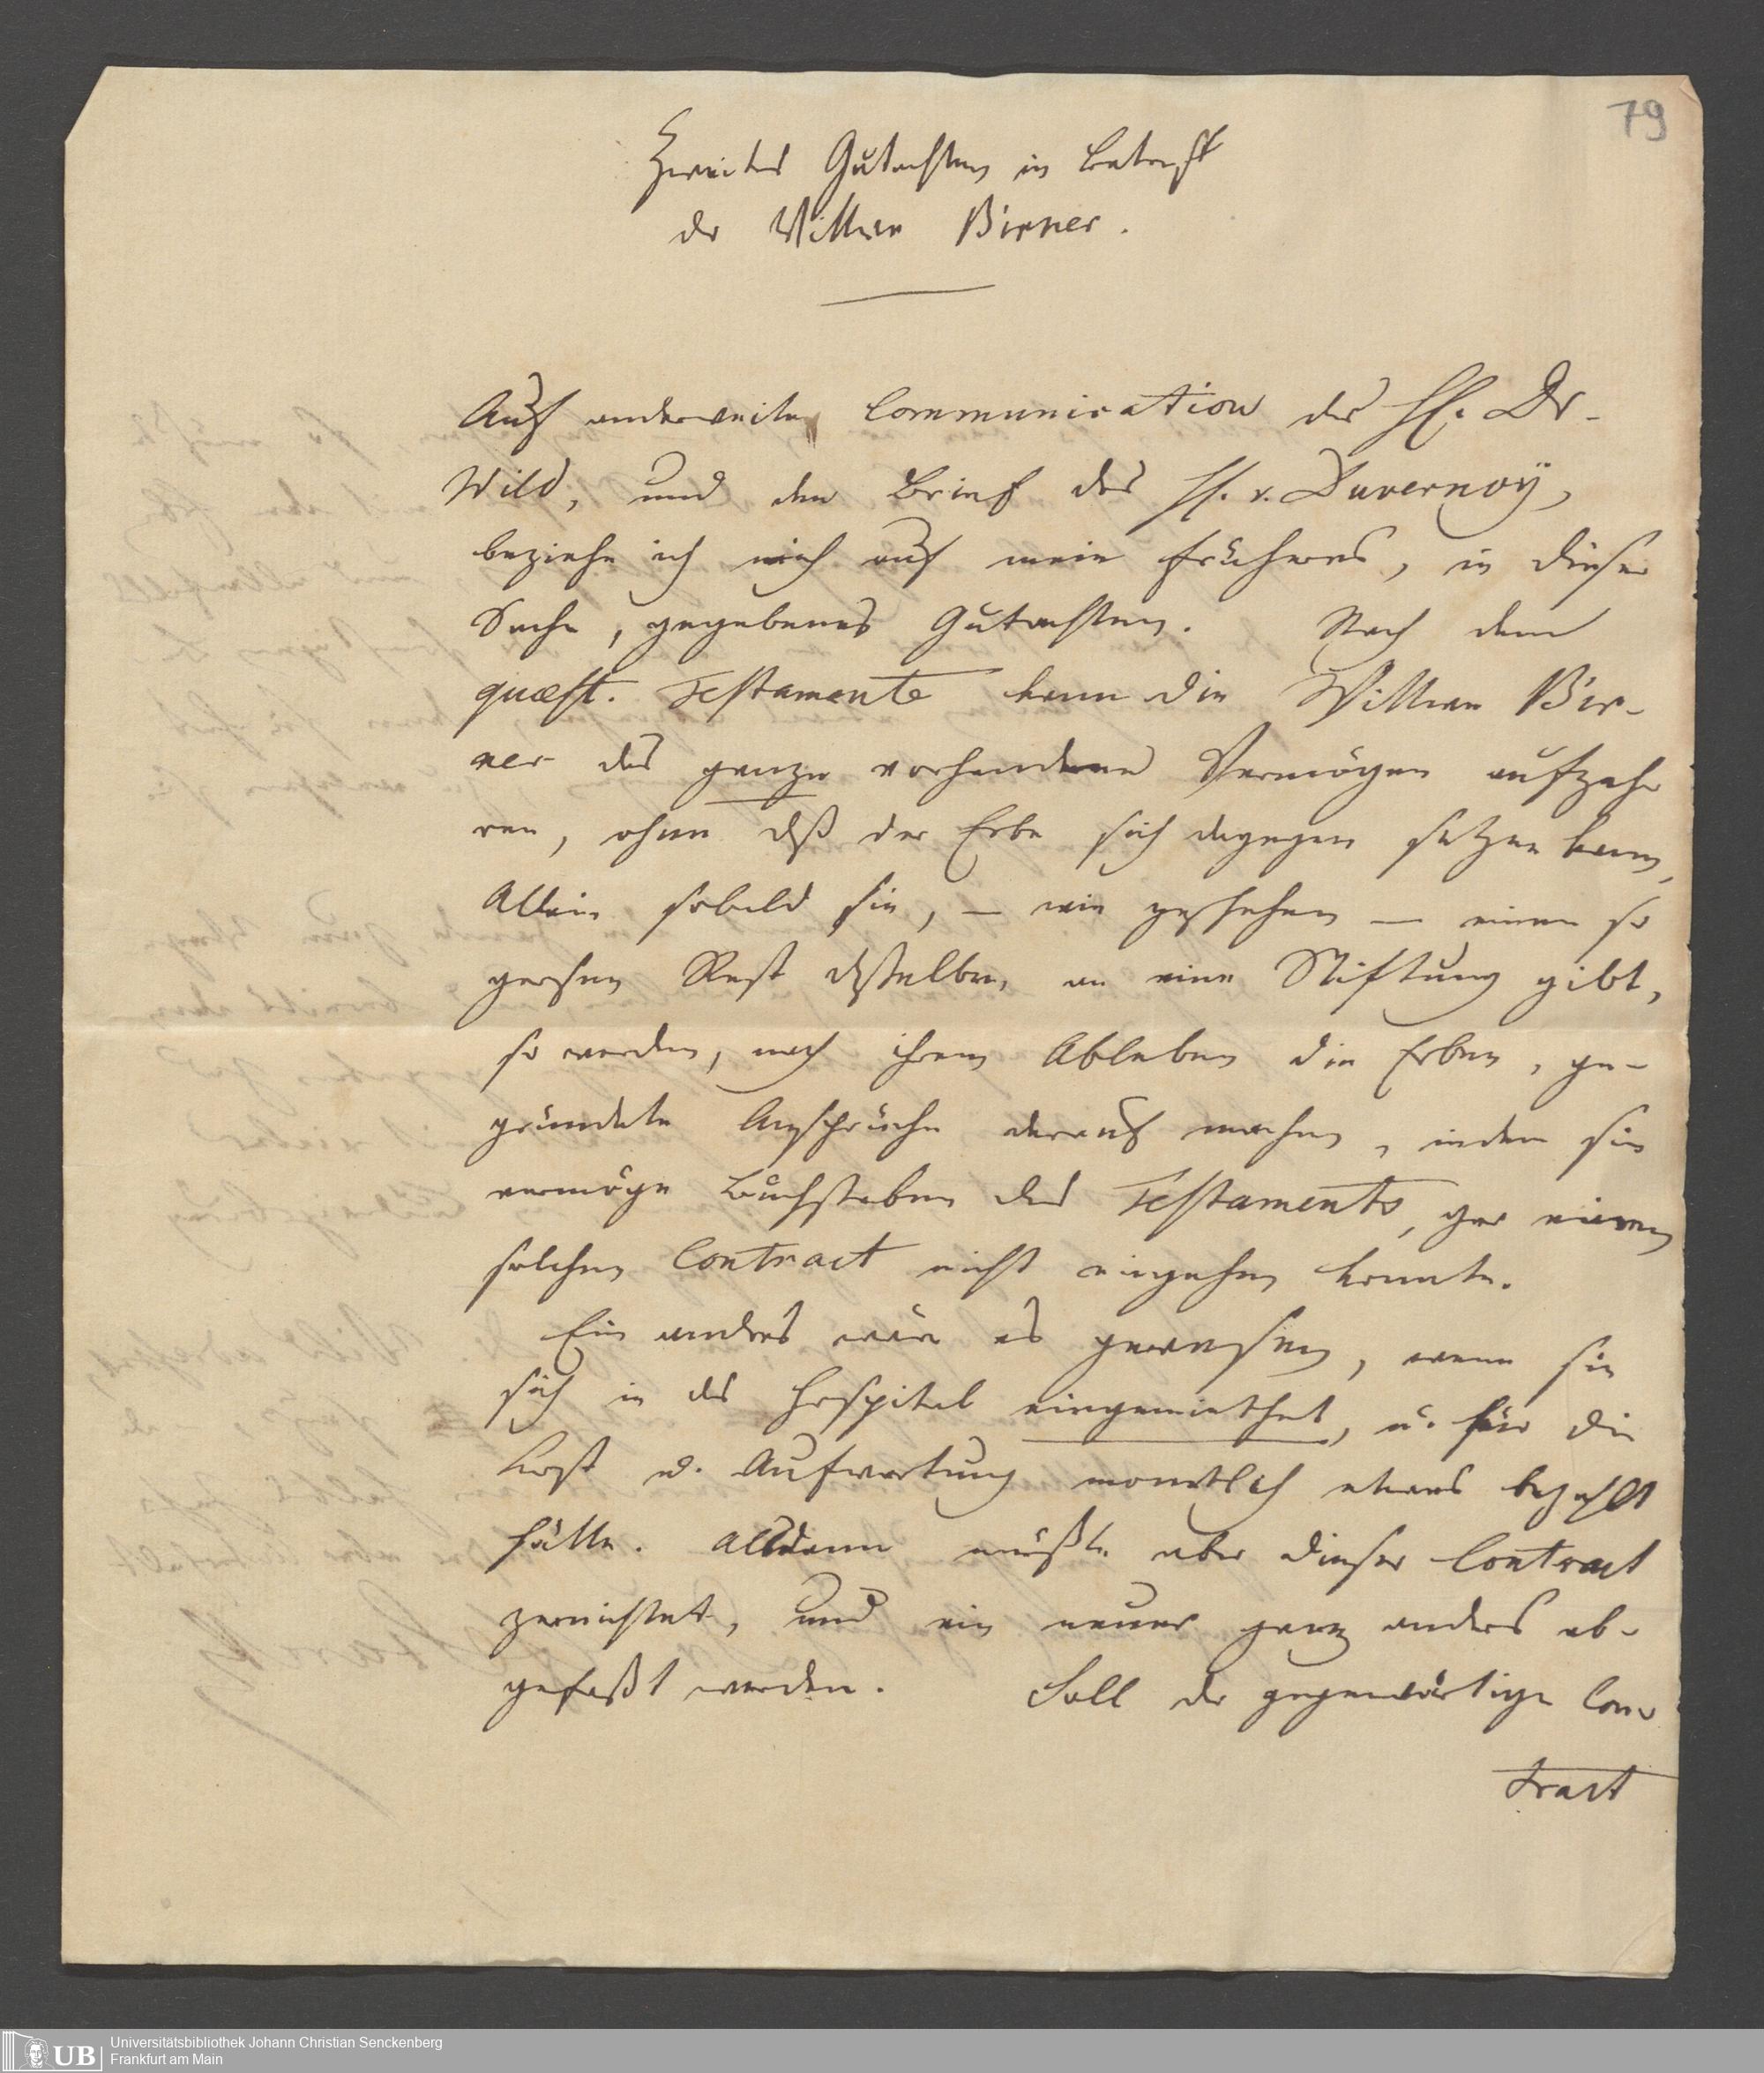 79
Zweites Gutachten in Betreff
der Wittwe Birner.
Auf anderweite Communication des H. Dr.
Wild, und den Brief des H. v. Duvernoÿ,
beziehe ich mich auf mein früheres, in dieser
Sache, gegebenes Gutachten. Nach dem
quaest. Testamente kann die Wittwe Bir-
ner das ganze vorhandene Vermögen aufzeh
ren, ohne daß der Erbe sich dagegen setzen kann,
Allein sobald sie, — wie geschehen — einen so
großen Rest desselben, an eine Stiftung gibt,
so werden, nach ihrem Ableben die Erben, ge-
gründete Ansprüche darauf machen, indem sie
vermöge Buchstaben des Testaments, gar einen
solchen Contract nicht eingehen konnte.
Ein andres wäre es gewesen, wenn sie
sich in das Hospital eingemiethet, u. für die
Kost u. Aufwartung monatlich etwas bezahlt
hätte. Alsdann müßte aber dieser Contract
zernichtet, und ein neuer ganz anders ab-
gefaßt werden. Soll der gegenwärtige Con-
tract
UB Universitätsbibliothek Johann Christian Senckenberg
Frankfurt am Main